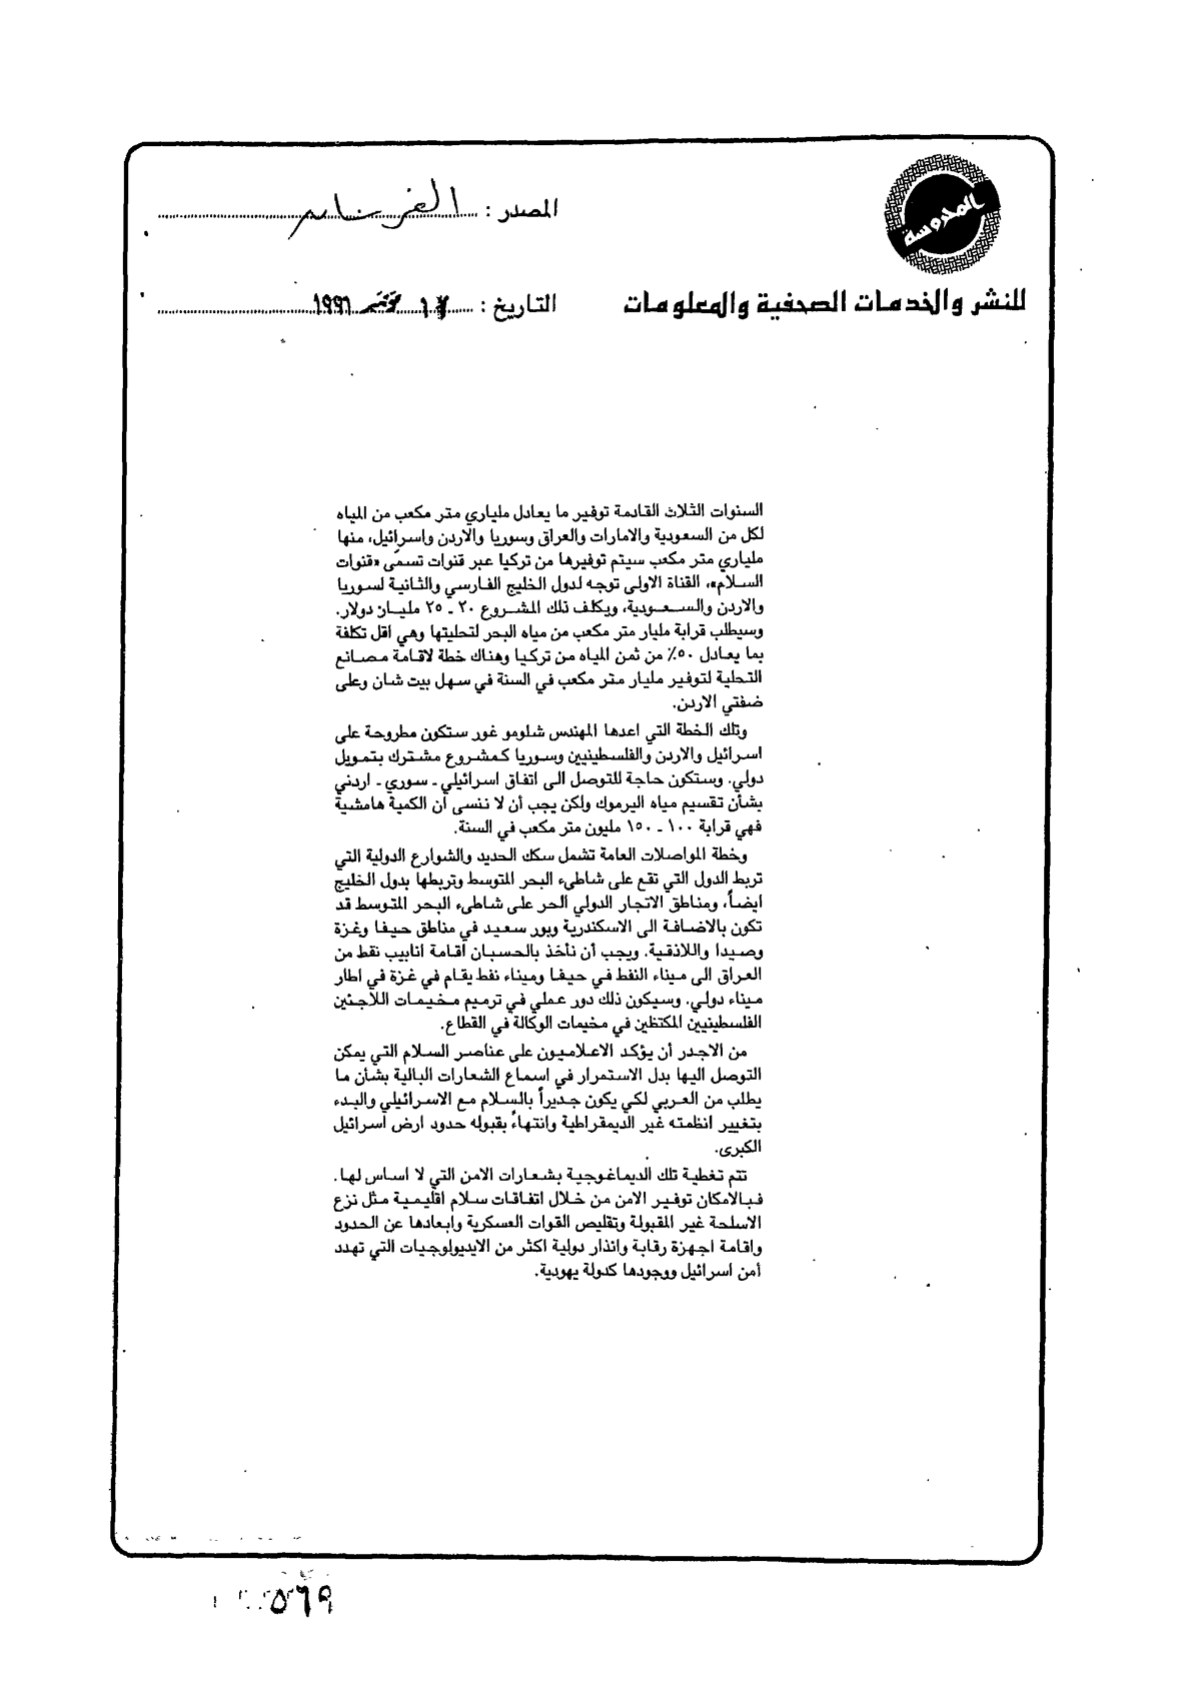 المحروسة
المصدر :
للنشر والخدمات الصحفية والمعلومات
التاريخ : ١٩٩١
السنوات الثلاث القادمة توفير ما يعادل ملياري متر مكعب من المياه
لكل من السعودية والامارات والعراق وسوريا والاردن واسرائيل، منها
ملياري متر مكعب سيتم توفيرها من تركيا عبر قنوات تسمّى «قنوات
السلام»، القناة الاولى توجه لدول الخليج الفارسي والثانية لسوريا
والاردن والسعودية، ويكلف ذلك المشروع ٢٠ ـ ٢٥ مليان دولار.
وسيطلب قرابة مليار متر مكعب من مياه البحر لتحليتها وهي اقل تكلفة
بما يعادل ٥٠٪ من ثمن المياه من تركيا وهناك خطة لاقامة مصانع
التحلية لتوفير مليار متر مكعب في السنة في سهل بيت شان وعلى
ضفتي الاردن.
وتلك الخطة التي اعدها المهندس شلومو غور ستكون مطروحة على
اسرائيل والاردن والفلسطينيين وسوريا كمشروع مشترك بتمويل
دولي. وستكون حاجة للتوصل الى اتفاق اسرائيلي ـ سوري ـ اردني
بشأن تقسيم مياه اليرموك ولكن يجب أن لا ننسى أن الكمية هامشية
فهي قرابة ١٠٠ ـ ١٥٠ مليون متر مكعب في السنة.
وخطة المواصلات العامة تشمل سكك الحديد والشوارع الدولية التي
تربط الدول التي تقع على شاطىء البحر المتوسط وتربطها بدول الخليج
ايضاً، ومناطق الاتجار الدولي الحر على شاطىء البحر المتوسط قد
تكون بالاضافة الى الاسكندرية وبور سعيد في مناطق حيفا وغزة
وصيدا واللاذقية. ويجب أن نأخذ بالحسبان اقامة انابيب نقط من
العراق الى ميناء النفط في حيفا وميناء نفط يقام في غزة في اطار
ميناء دولي. وسيكون ذلك دور عملي في ترميم مخيمات اللاجئين
الفلسطينيين المكتظين في مخيمات الوكالة في القطاع.
من الاجدر أن يؤكد الاعلاميون على عناصر السلام التي يمكن
التوصل اليها بدل الاستمرار في اسماع الشعارات البالية بشأن ما
يطلب من العربي لكي يكون جديراً بالسلام مع الاسرائيلي والبدء
بتغيير انظمته غير الديمقراطية وانتهاءً بقبوله حدود ارض اسرائيل
الكبرى.
تتم تغطية تلك الديماغوجية بشعارات الامن التي لا اساس لها.
فبالامكان توفير الامن من خلال اتفاقات سلام اقليمية مثل نزع
الاسلحة غير المقبولة وتقليص القوات العسكرية وابعادها عن الحدود
واقامة اجهزة رقابة وانذار دولية اكثر من الايديولوجيات التي تهدد
أمن اسرائيل ووجودها كدولة يهودية.
٥٦٩